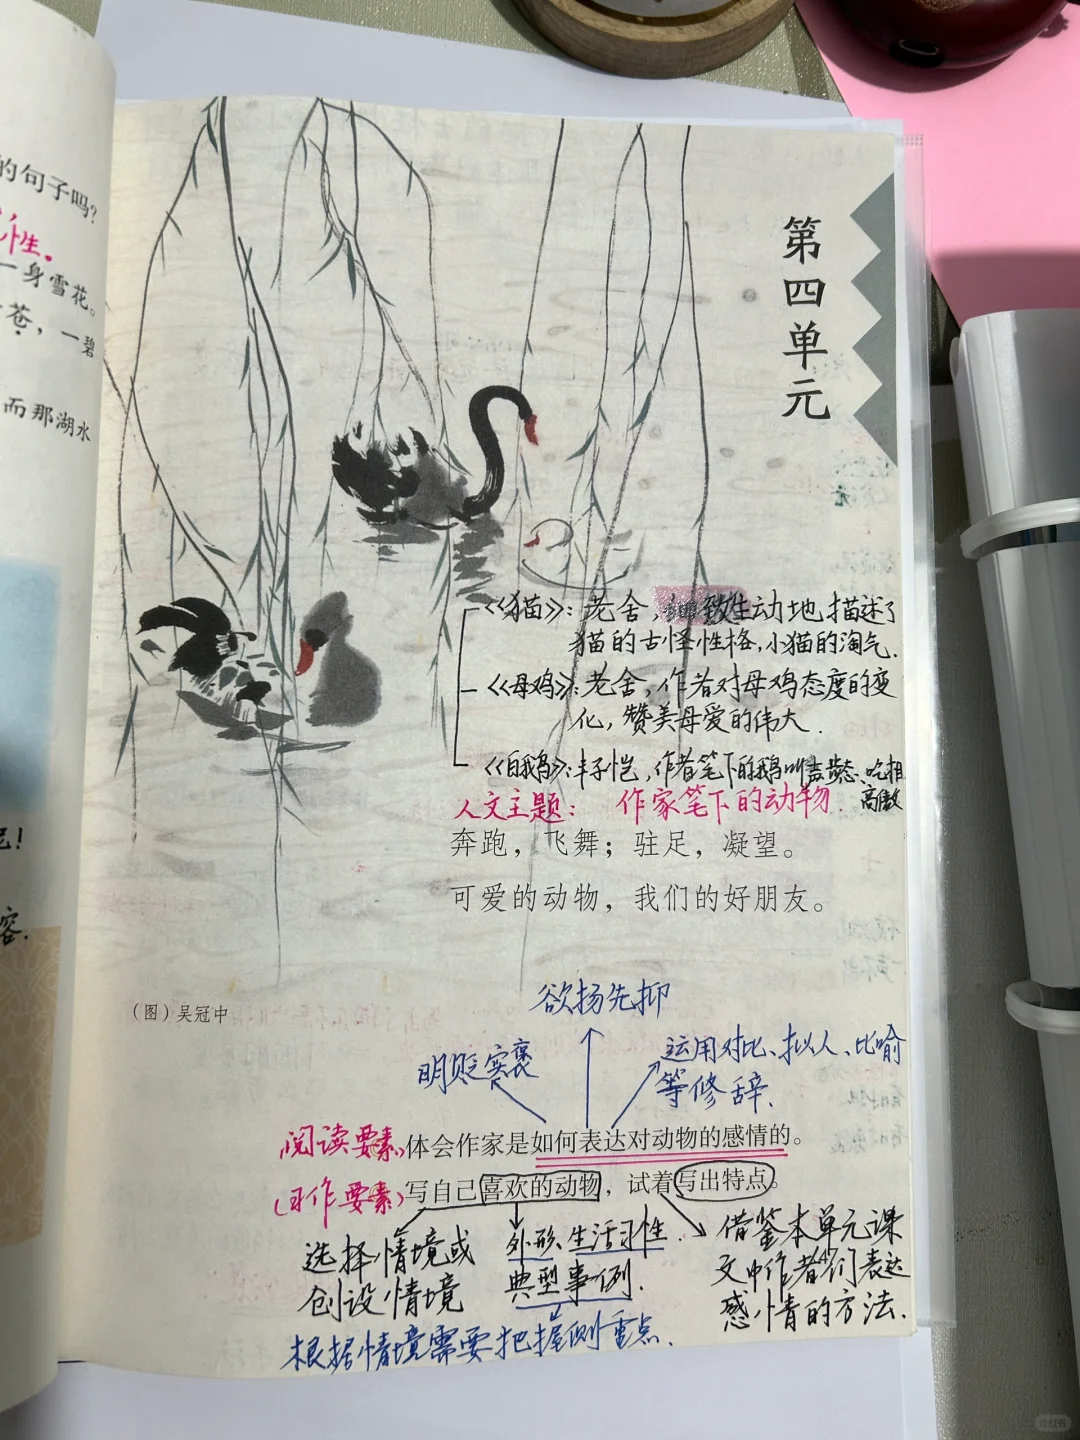 的句子吗？
性。
一身雪花。
苍，一碧
而那湖水
容.
第四单元
《猫》：老舍，细致生动地描述了
猫的古怪性格，小猫的淘气.
《母鸡》：老舍，作者对母鸡态度的变
化，赞美母爱的伟大.
《白鹅》：丰子恺，作者笔下的鹅叫声、步态、吃相
高傲
人文主题： 作家笔下的动物
奔跑，飞舞；驻足，凝望。
可爱的动物，我们的好朋友。
（图）吴冠中
欲扬先抑
明贬实褒
运用对比、拟人、比喻
等修辞.
阅读要素 体会作家是如何表达对动物的感情的。
(习作要素) 写自己喜欢的动物，试着写出特点。
选择情境或
创设情境
外形、生活习性.
典型事例.
借鉴本单元课
文中作者们表达
感情的方法.
根据情境需要把握侧重点.
小红书